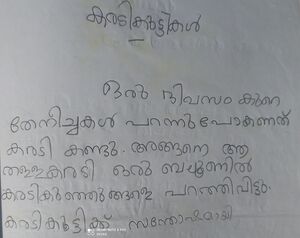 കരടികുട്ടികൾ
ഒരു ദിവസം കുറെ
തേനിച്ചകൾ പറന്നുപോകുന്നത്
കരടി കണ്ടു. അങ്ങനെ ആ
തള്ളകരടി ഒരു ബലൂണിൽ
കരടികുഞ്ഞുങ്ങളെ പറത്തിവിട്ടു.
കരടികുട്ടിക്ക് സന്തോഷമായി